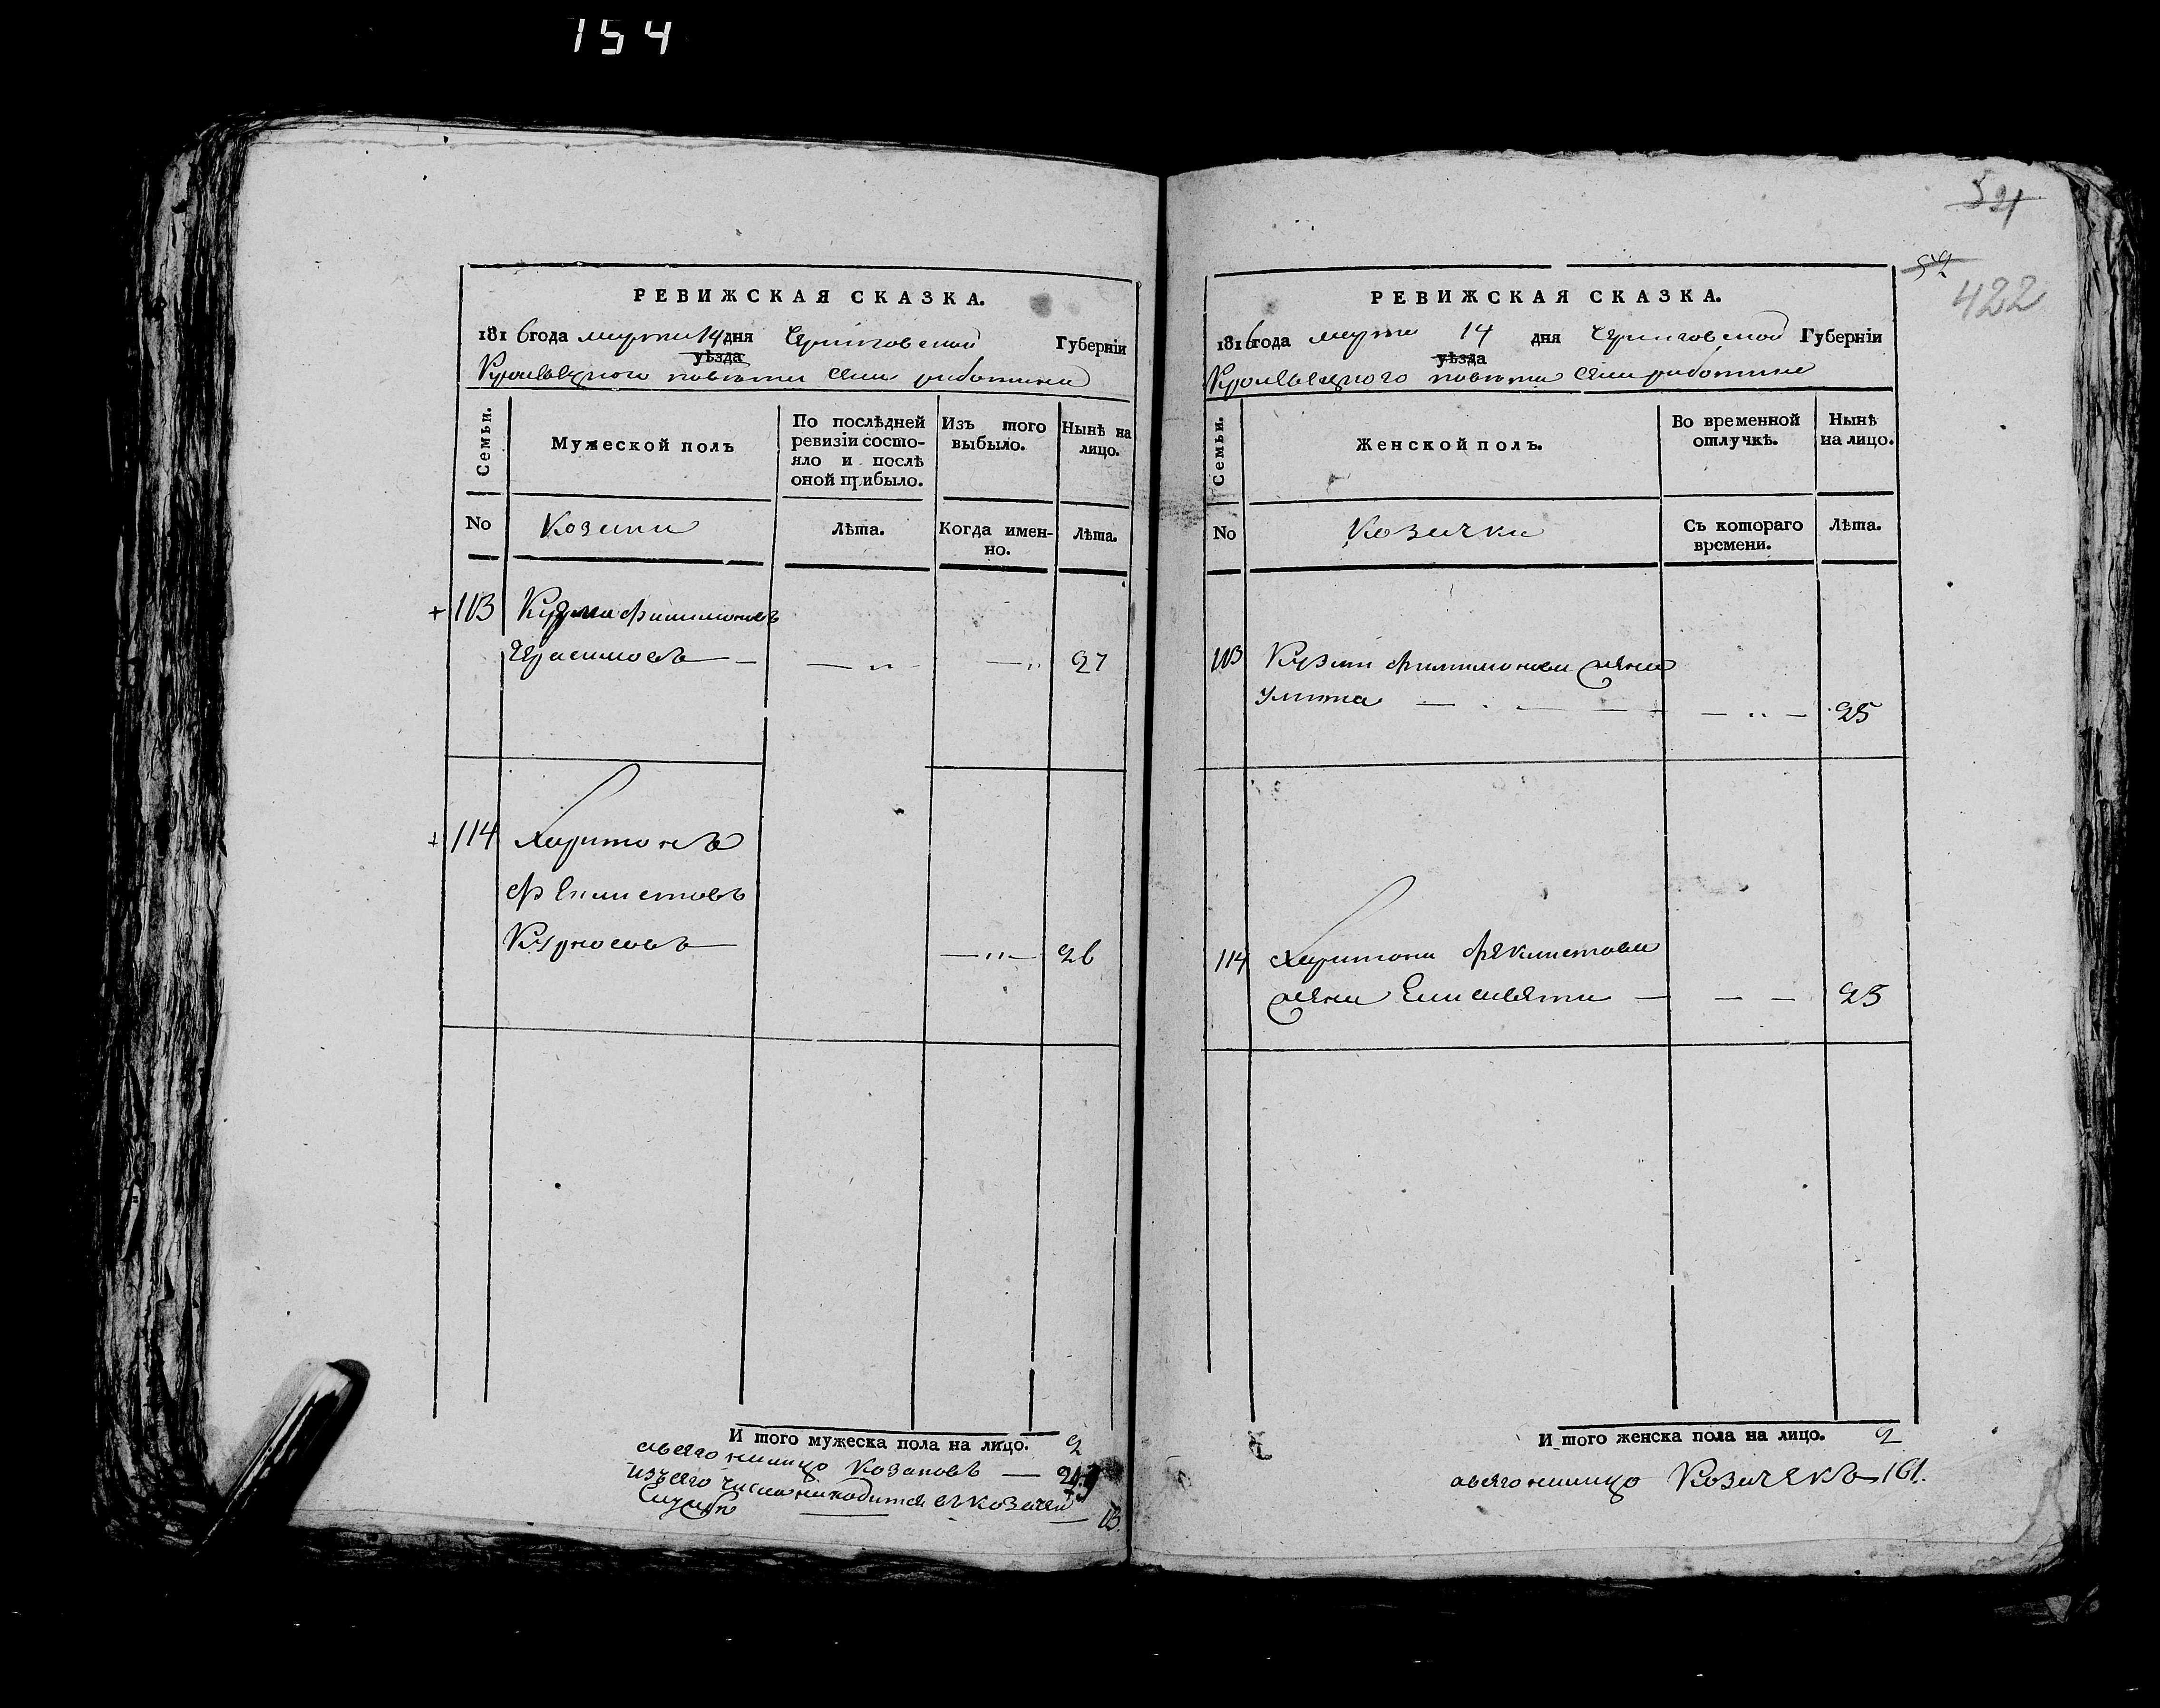 154
РЕВИЖСКАЯ СКАЗКА.
1816 года марта 14 дня Черниговской Губерніи
уѣзда
Кролевецкого повѣта села работина
Семьи.
Мужеской полъ
По послѣдней ревизіи состояло и послѣ оной прибыло.
Изъ того выбыло.
Нынѣ на лицо.
No
Козаки
Лѣта.
Когда именно.
Лѣта.
+ 113 Кузма филимоновъ
Герасимовъ — 27
+ 114 Харитонъ
Феклистовъ
Курносовъ — 26
И того мужеска пола на лицо. 2
а всего налицо Козаковъ —
изъ сего числа находится въ козачей
службе — 13.
54
52
422
РЕВИЖСКАЯ СКАЗКА.
1816 года марта 14 дня Черниговской Губерніи
уѣзда
Кролевецкого повѣта села работина
Семьи.
Женской полъ.
Во временной отлучкѣ.
Нынѣ на лицо.
No
Козачки
Съ котораго времени.
Лѣта.
113 Кузми филимонова жена
Улита — 25
114 Харитона феклистова
жена Елисавета — 25
И того женска пола на лицо. 2
а всего налицо Козачекъ 161.